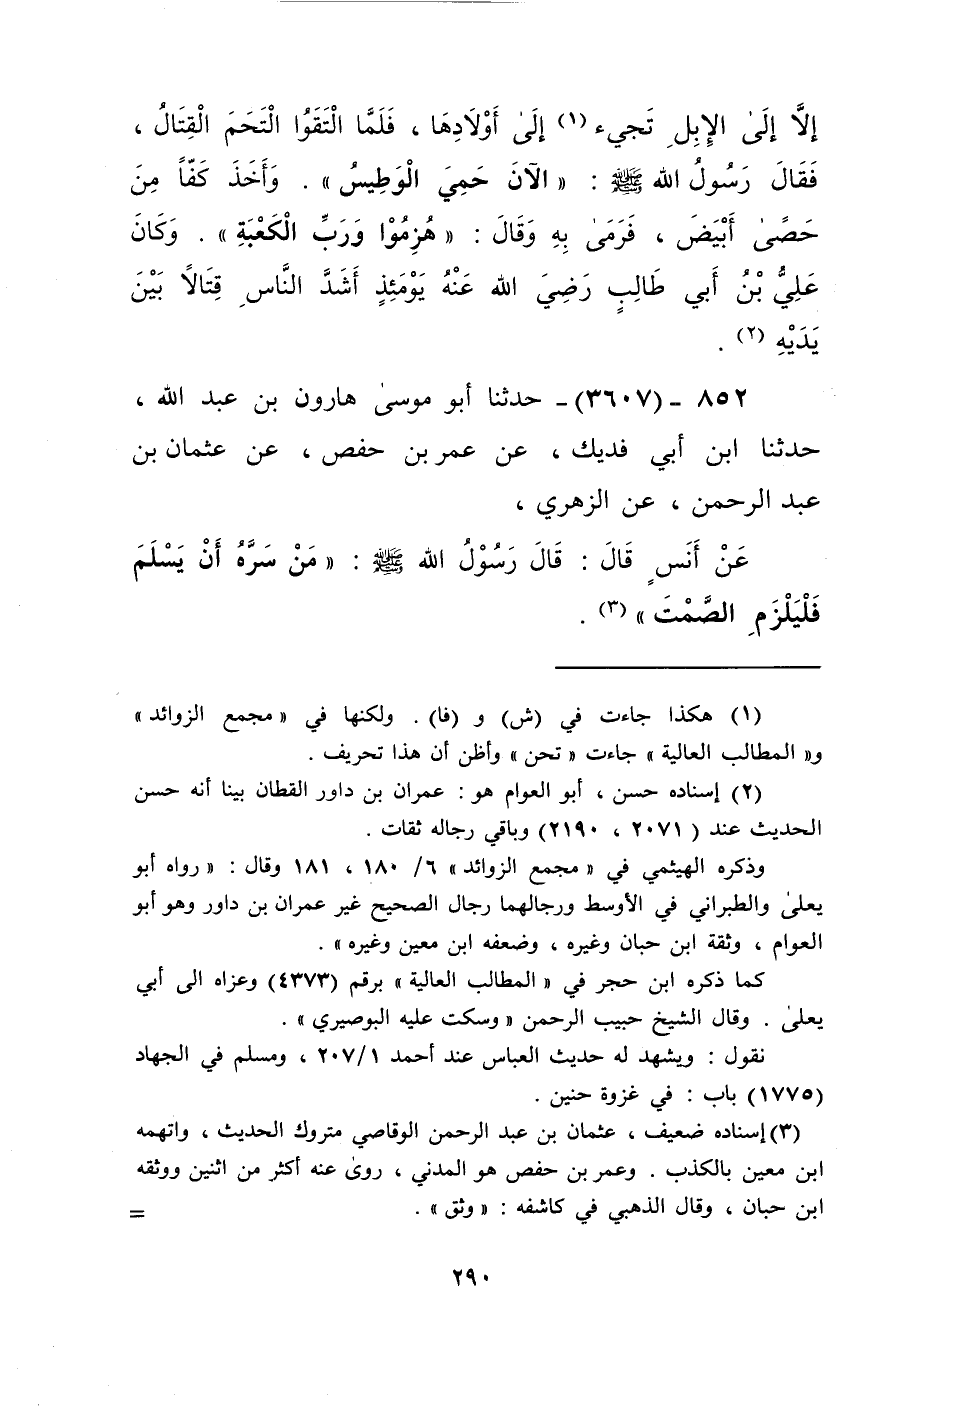 إلَّا إِلَىٰ الإِبِلِ تَجيء (١) إِلَىٰ أَوْلَادِهَا ، فَلَمَّا الْتَقَوُا الْتَحَمَ الْقِتَالُ ،
فَقَالَ رَسُولُ الله ﷺ : « الآنَ حَمِيَ الْوَطِيسُ » . وَأَخَذَ كَفّاً مِنَ
حَصًىٰ أَبْيَضَ ، فَرَمَىٰ بِهِ وَقَالَ : « هُزِمُوْا وَرَبِّ الْكَعْبَةِ » . وَكَانَ
عَلِيُّ بْنُ أَبي طَالِبٍ رَضِيَ الله عَنْهُ يَوْمَئِذٍ أَشَدَّ النَّاسِ قِتَالًا بَيْنَ
يَدَيْهِ (٢) .
٨٥٢ ـ (٣٦٠٧) ـ حدثنا أبو موسىٰ هارون بن عبد الله ،
حدثنا ابن أبي فديك ، عن عمر بن حفص ، عن عثمان بن
عبد الرحمن ، عن الزهري ،
عَنْ أَنَسٍ قَالَ : قَالَ رَسُوْلُ الله ﷺ : « مَنْ سَرَّهُ أَنْ يَسْلَمَ
فَلْيَلْزَمِ الصَّمْتَ » (٣) .
(١) هكذا جاءت في (ش) و (فا) . ولكنها في « مجمع الزوائد »
و« المطالب العالية » جاءت « تحن » وأظن أن هذا تحريف .
(٢) إسناده حسن ، أبو العوام هو : عمران بن داور القطان بينا أنه حسن
الحديث عند ( ٢٠٧١ ، ٢١٩٠) وباقي رجاله ثقات .
وذكره الهيثمي في « مجمع الزوائد » ٦/ ١٨٠ ، ١٨١ وقال : « رواه أبو
يعلىٰ والطبراني في الأوسط ورجالهما رجال الصحيح غير عمران بن داور وهو أبو
العوام ، وثقة ابن حبان وغيره ، وضعفه ابن معين وغيره » .
كما ذكره ابن حجر في « المطالب العالية » برقم (٤٣٧٣) وعزاه الى أبي
يعلىٰ . وقال الشيخ حبيب الرحمن « وسكت عليه البوصيري » .
نقول : ويشهد له حديث العباس عند أحمد ٢٠٧/١ ، ومسلم في الجهاد
(١٧٧٥) باب : في غزوة حنين .
(٣) إسناده ضعيف ، عثمان بن عبد الرحمن الوقاصي متروك الحديث ، واتهمه
ابن معين بالكذب . وعمر بن حفص هو المدني ، روىٰ عنه أكثر من اثنين ووثقه
ابن حبان ، وقال الذهبي في كاشفه : « وثق » . =
٢٩٠